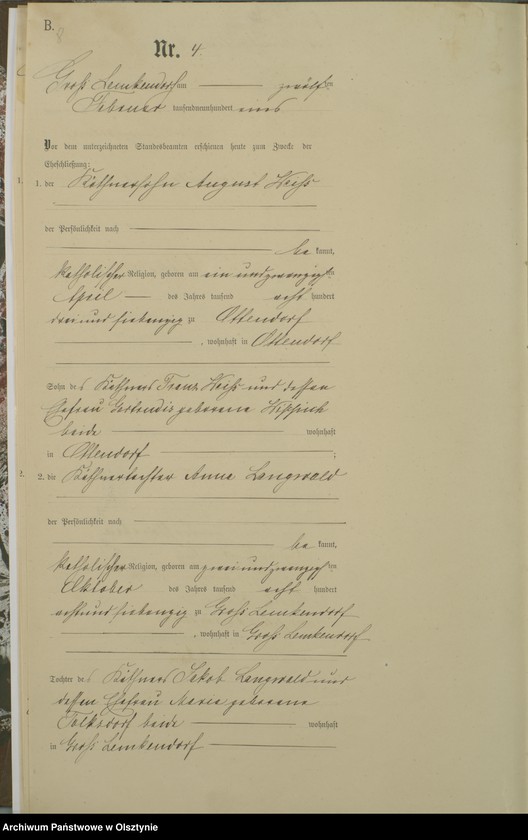 B.
8
Nr. 4.
Groß Lemkendorf am zwölften
Februar tausendneunhundert eins
Vor dem unterzeichneten Standesbeamten erschienen heute zum Zweck der
Eheschließung:
1.
1. der Käthnersohn August Weiß
der Persönlichkeit nach
be kannt,
katholischer Religion, geboren am ein und zwanzigsten
April des Jahres tausend acht hundert
drei und siebenzig zu Ottendorf
, wohnhaft in Ottendorf
Sohn des Käthners Franz Weiß und dessen
Ehefrau Gertrudis geborene
beide wohnhaft
in Ottendorf ;
2.
2. die Käthnertochter Anna Langwald
der Persönlichkeit nach
be kannt,
katholischer Religion, geboren am zwei und zwanzigsten
Oktober des Jahres tausend acht hundert
acht und siebenzig zu Groß Lemkendorf
, wohnhaft in Groß Lemkendorf
Tochter des Käthners Jakob Langwald und
dessen Ehefrau Maria geborene
Folksdorf beide wohnhaft
in Groß Lemkendorf
Archiwum Państwowe w Olsztynie